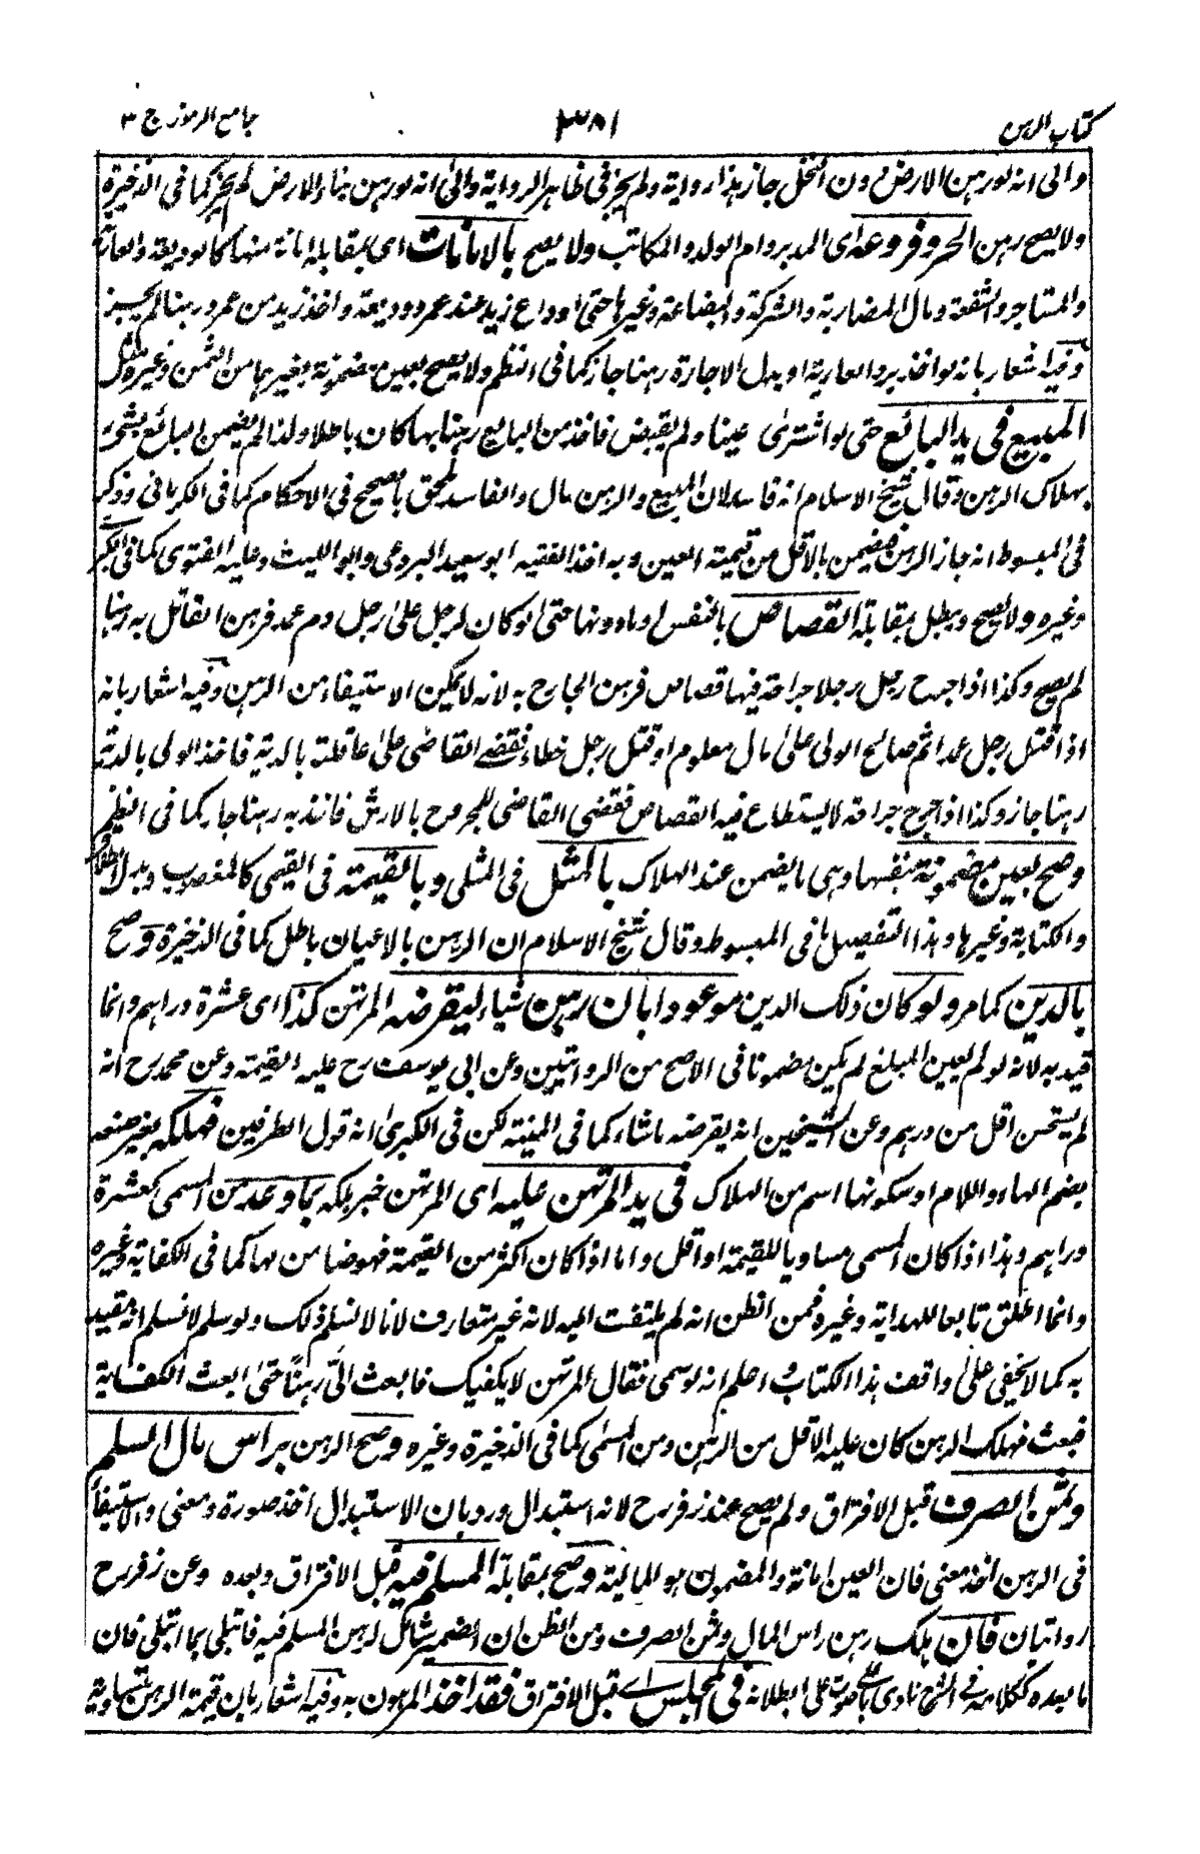 كتاب الرهن
٣٨١
جامع الرموز ج ٣
والى انه لو رهن الارض دون النخل جاز بهذا رواية ولم يجز فى ظاهر الرواية والى انه لو رهن بناء الارض لم يجز كما فى الذخيرة
ولا يصح رهن الحر وفروعه اى المدبر وام الولد والمكاتب ولا يصح بالامانات اى بمقابلة امانة منها كالوديعة والعارية
والمستاجر والشفعة ومال المضاربة والشركة والبضاعة وغيرها حتى اوداع زيد عند عمرو وديعة واخذ زيد من عمرو رهنا لم يجز
وفيه اشعار بانه لو اخذ برد العارية او بدل الاجارة رهنا جاز كما فى النظم ولا يصح بعين مضمونة بغيرها من الثمن وغيره مثل
المبيع فى يد البائع حتى لو اشترى عينا ولم يقبض فاخذ من البايع رهنا بها كان باطلا ولذا لم يضمن البائع بشئ
بهلاك الرهن وقال شيخ الاسلام انه فاسد لان المبيع والرهن مال والفاسد يلحق بالصحيح فى الاحكام كما فى الكرمانى وذكر
فى المبسوط انه جاز الرهن فيضمن بالاقل من قيمته العين وبه اخذ الفقيه ابو سعيد البردعى وابو الليث وعليه الفتوى كما فى الكبرى
وغيره ولا يصح ويبطل بمقابلة القصاص بالنفس او ما دونها حتى لو كان لرجل على رجل دم عمد فرهن القاتل به رهنا
لم يصح وكذا اذا جرح رجل رجلا جراحة فيها قصاص فرهن الجارح به لانه لا يمكن الاستيفاء من الرهن وفيه اشعار بانه
اذا قتل رجل عمدا ثم صالح الولى على مال معلوم او قتل رجل خطاء فقضى القاضى على عاقلته بالدية فاخذ الولى بالدية
رهنا جاز وكذا اذا جرح جراحة لا يستطاع فيه القصاص فقضى القاضى للمجروح بالارش فاخذ به رهنا جاز كما فى النظم
وصح بعين مضمونة بنفسها وهى ما يضمن عند الهلاك بالمثل فى المثلى وبالقيمة فى القيمى كالمغصوب وبدل
والكتابة وغيرها وهذا التفصيل ما فى المبسوط وقال شيخ الاسلام ان الرهن بالاعيان باطل كما فى الذخيرة وصح
بالدين كما مر ولو كان ذلك الدين موعودا بان رهن شياء ليقرضه المرتهن كذا اى عشرة دراهم وانما
قيد به لانه لو لم يعين المبلغ لم يكن مضمونا فى الاصح من الروايتين وعن ابى يوسف رح عليه القيمة وعن محمد رح انه
لم يستحسن اقل من درهم وعن الشيخين انه يقرضه ما شاء كما فى المنية لكن فى الكبرى انه قول الطرفين فهلكه بغير صنعه
بضم الهاء واللام او سكونها اسم من الهلاك فى يد المرتهن عليه اى المرتهن خبر هلكه بما وعد من المسمى كعشرة
دراهم وهذا اذا كان المسمى مساويا للقيمة او اقل واما اذا كان اكثر من القيمة فهو ضامن لها كما فى الكفاية وغيره
وانما اطلق تابعا للهداية وغيره فمن الظن انه لم يلتفت اليه لانه غير متعارف لانا لا نسلم ذلك ولو سلم لا نسلم انه مقيد
به كما لا يخفى على واقف هذا الكتاب واعلم انه لو سمى فقال المرتهن لا يكفيك فابعث الىّ رهنا حتى ابعث الكفاية
فبعث فهلك الرهن كان عليه الاقل من الرهن ومن المسمى كما فى الذخيرة وغيره وصح الرهن براس مال السلم
وثمن الصرف قبل الافتراق ولم يصح عند زفر رح لانه استبدال ورد بان الاستبدال اخذ صورة ومعنى والاستيفاء
فى الرهن اخذ معنى فان العين امانة والمضمون هو المالية وصح بمقابلة المسلم فيه قبل الافتراق وبعده وعن زفر رح
روايتان فان هلك رهن راس المال وثمن الصرف ومن الظن ان الضمير شامل لرهن المسلم فيه فابتلى بما ابتلى فان
ما بعده ككلامه فى الشرح نادى باعلى صوت على ابطلانه فى المجلس اے قبل الافتراق فقد اخذ المرهون به وفيه اشعار بان قيمة الرهن